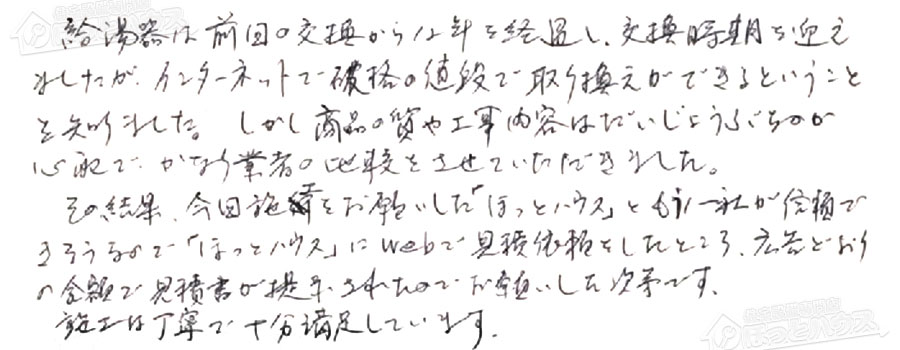 給湯器は前回の交換から12年を経過し、交換時期を迎え
ましたが、インターネットで破格の値段で取り換えができるということ
を知りました。しかし商品の質や工事内容はだいじょうぶなのか
心配で、かなり業者の比較をさせていただきました。
その結果、今回施工をお願いした「ほっとハウス」ともう一社が信頼で
きそうなので「ほっとハウス」にwebで見積依頼をしたところ、広告どおり
の金額で見積書が提示されたのでお願いした次第です。
施工は丁寧で十分満足しています。
ほっとハウス